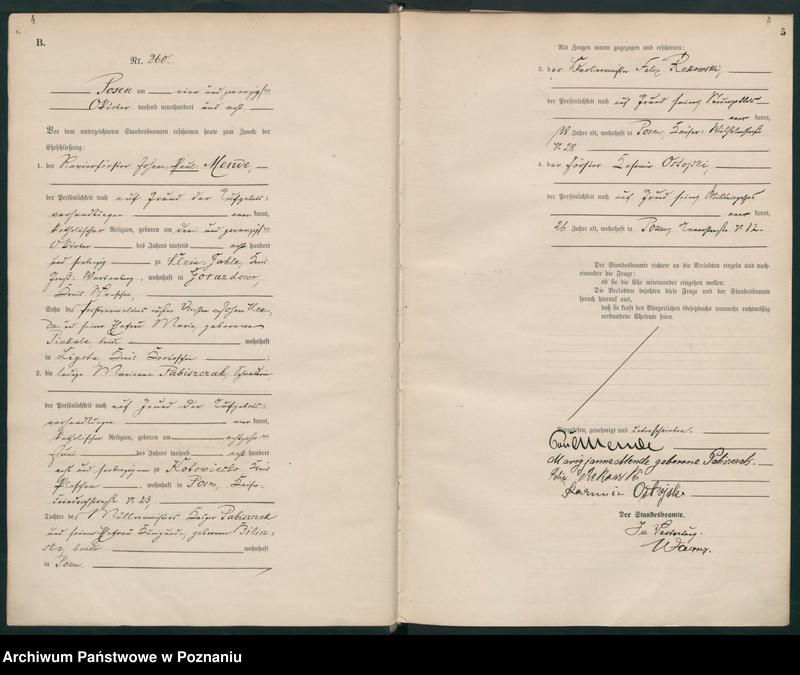 B.
Nr. 260.
Posen am vier und zwanzigsten
Oktober tausend neunhundert und acht.
Vor dem unterzeichneten Standesbeamten erschienen heute zum Zweck der
Eheschließung:
1. der Revierförster Johann Paul Mende,
der Persönlichkeit nach auf Grund der Aufgebots-
verhandlungen kannt,
katholischer Religion, geboren am drei und zwanzigsten
Oktober des Jahres tausend acht hundert
und siebzig zu Klein-
wohnhaft in Gorazdowo,
Kreis Wreschen,
Sohn des
da und seiner Ehefrau Marie, geborenen
beide wohnhaft
in Ligota Kreis
2. die ledige Marianna Pabiszczak,
der Persönlichkeit nach auf Grund der Aufgebots-
verhandlungen kannt,
katholischer Religion, geboren am
Juni des Jahres tausend acht hundert
acht und siebzig zu Kotowiecko, Kreis
Pleschen, wohnhaft in Posen, Kaiser-
23,
Tochter des Müllermeisters Kasper Pabiszczak
und seiner Ehefrau Kunigunde, geborenen Bilin-
ska, beide wohnhaft
in Posen.
5
Als Zeugen waren zugezogen und erschienen:
3. der Felix Rekowski,
der Persönlichkeit nach auf Grund seines
kannt,
38 Jahre alt, wohnhaft in Posen, Kaiser-Wilhelmstraße
N. 28
4. der Förster Kasimir Ostojski,
der Persönlichkeit nach auf Grund seines Militärpasses
kannt,
26 Jahre alt, wohnhaft in Posen, N. 12.
Der Standesbeamte richtete an die Verlobten einzeln und nach-
einander die Frage:
ob sie die Ehe miteinander eingehen wollen.
Die Verlobten bejahten diese Frage und der Standesbeamte
sprach hierauf aus,
daß sie kraft des Bürgerlichen Gesetzbuchs nunmehr rechtmäßig
verbundene Eheleute seien.
Vorgelesen, genehmigt und unterschrieben.
Paul Mende
Maryjanna Mende geborene Pabiszczak.
Felix Rekowski
Kasimir Ostojski
Der Standesbeamte.
In Vertretung.
Archiwum Państwowe w Poznaniu